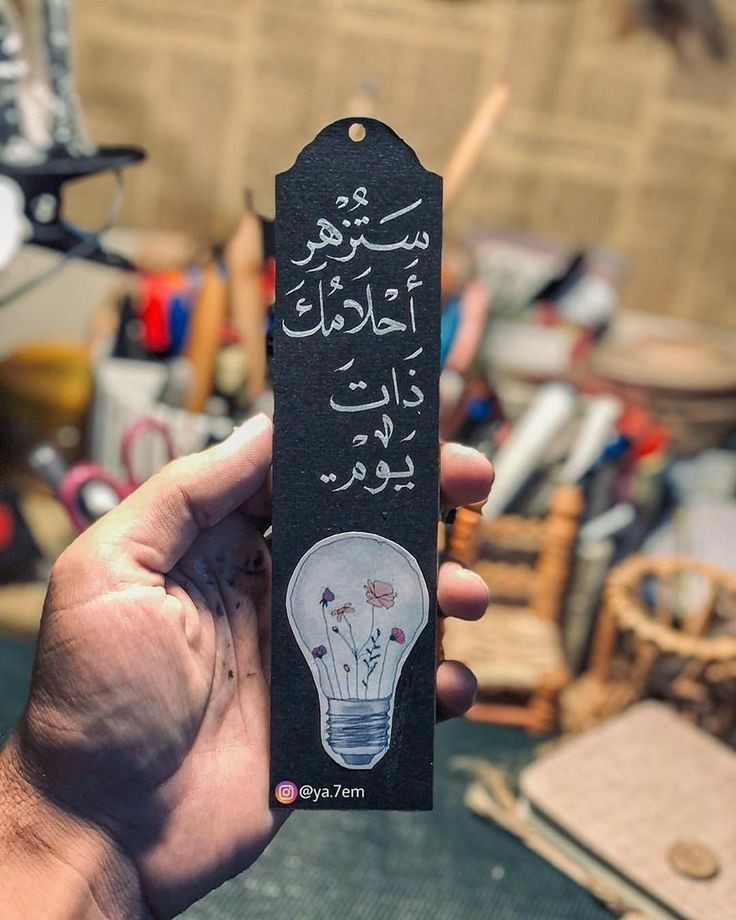 سَتُزْهِر
أَحْلَامُكَ
ذَاتَ
يَوْمْ..
@ya.7em